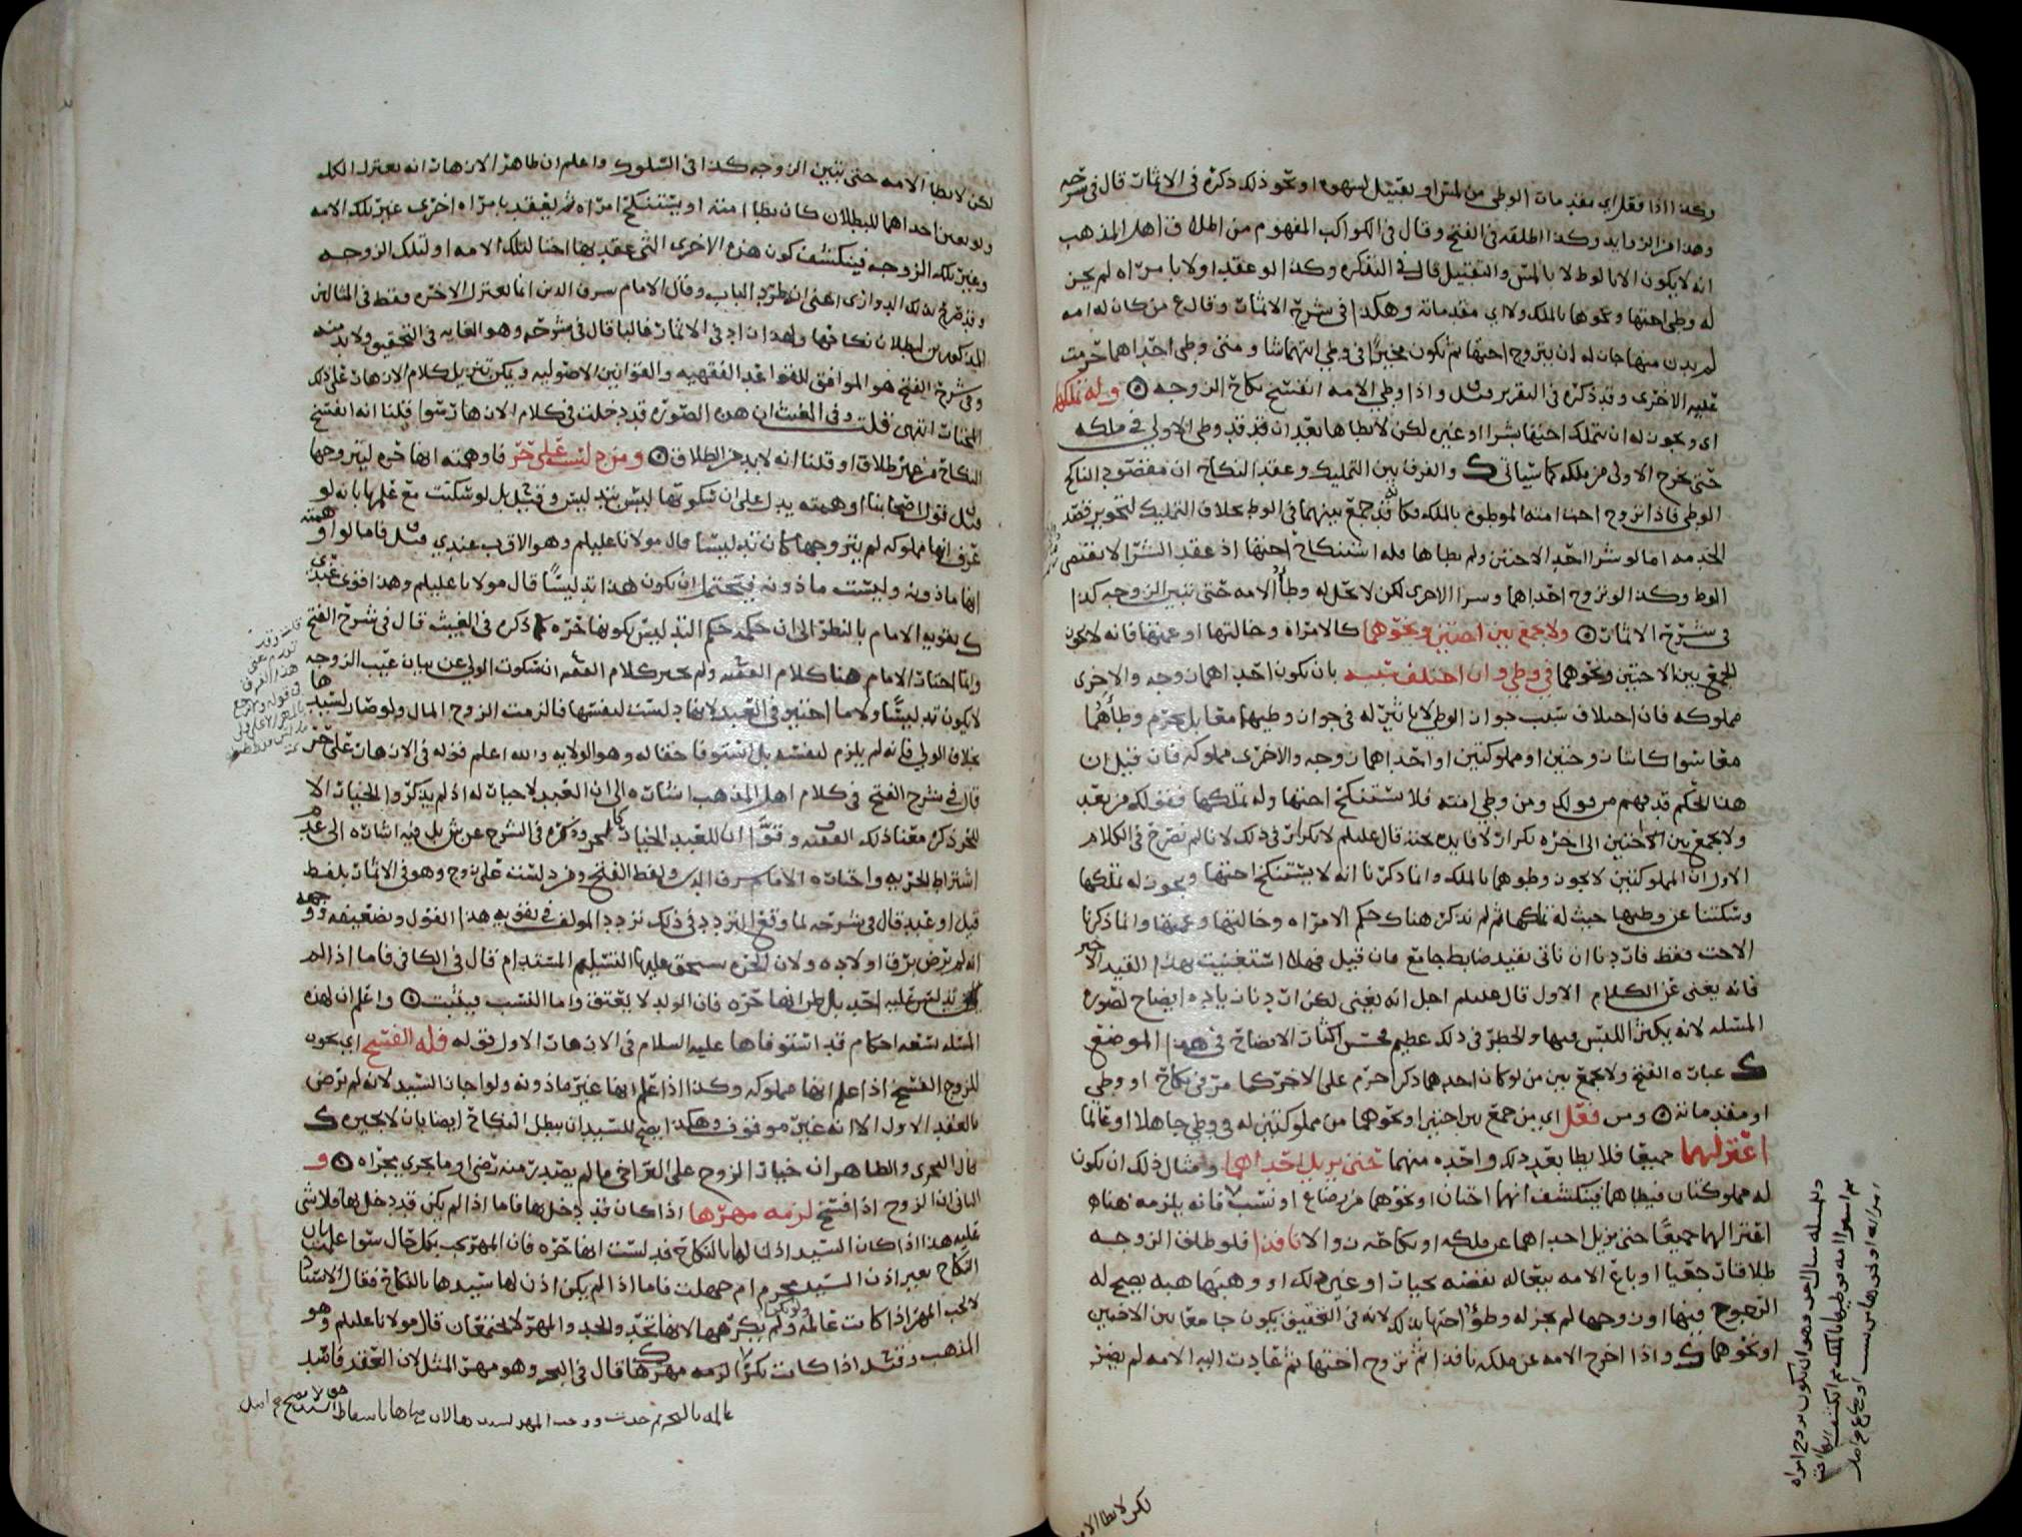 وكذا اذا فعل اي مقدمات الوطي من لمس او تقبيل لشهوة او نحو ذلك ذكره في الاثمار قال في شرحه
وهذا من الزوايد وكذا اطلقه في الفتح وقال في الكواكب المفهوم من اطلاق اهل المذهب
انه لا يكون الا بالوطء لا بالمس والتقبيل قال في التذكرة وكذا لو عقد اولا بامراه لم يجز
له وطي اختها ونحوها بالملك ولا اي مقدماته وهكذا في شرح الاثمار وقال ع من كان له امه
لم يدن منها جاز له ان يتزوج اختها ثم يكون مخيرا في وطي ايتهما شا ومتى وطي احداهما حرمت
عليه الاخرى وقد ذكره في التقرير وقيل واذا وطي الامه انفسخ نكاح الزوجه وله تملكها
اي ويجوز له ان يتملك اختها بشرا او غيره لكن لا يطاها بعد ان قد وطي الاولى في ملكه
حتى يخرج الاولى من ملكه كما سياتي والفرق بين التمليك وعقد النكاح ان مقصود الناكح
الوطي فاذا تزوج اخت امته الموطوة بالملك فكانه قد جمع بينهما في الوطء بخلاف التمليك لتجويز قصد
الخدمه اما لو شرا احد الاختين ولم يطاها فله استنكاح اختها اذ عقد الشرا لا يقتضي
الوطء وكذا لو تزوج احداهما وشرا الاخرى لكن لا يحل له وطأ الامه حتى تبين الزوجه كذا
في شرح الاثمار ولا يجمع بين اختين ونحوهما كالامراة وخالتها او عمتها فانه لا يجوز
الجمع بين الاختين ونحوهما في وطي وان اختلف سببه بان يكون احداهما زوجه والاخرى
مملوكه فان اختلاف سبب جواز الوطي لا تاثير له في جواز وطيهما معا بل يحرم وطأهما
معا سوا كانتا زوجتين او مملوكتين او احداهما زوجه والاخرى مملوكه فان قيل ان
هذا الحكم قد فهم من قولك ومن وطي امته فلا يستنكح اختها وله تملكها فقولك من بعد
ولا يجمع بين اختين الى اخره تكرار لا فايده تحته قال عليلم لا تكرار في ذلك لانا لم نصرح في الكلام
الاول ان المملوكتين لا يجوز وطوهما بالملك وانما ذكرنا انه لا يستنكح اختها ويجوز له تملكها
وسكتنا عن وطيها حيث له تملكها ثم لم نذكر هناك حكم الامراه وخالتها وعمتها وانما ذكرنا
الاخت فقط فاردنا ان ناتي بقيد ضابط جامع فان قيل فهلا استغنيت بهذا القيد الاخير
فانه يغني عن الكلام الاول قال عليلم اجل انه يغني لكن اردنا زياده ايضاح لصورة
المسئله لانه يكثر اللبس فيها والخطر في ذلك عظيم فحسن اكثار الايضاح في هذا الموضع
عبارة الفتح ولا يجمع بين من لو كان احدهما ذكرا حرم على الاخر كما مر في نكاح او وطي
او مقدماته ومن فعل اي من جمع بين اختين او نحوهما من مملوكتين له في وطي جاهلا او عالما
اعتزلهما جميعا فلا يطا بعد ذلك واحده منهما حتى يزيل احداهما ومثال ذلك ان يكون
له مملوكتان فيطاهما فينكشف انهما اختان او نحوهما من رضاع او نسب فانه يلزمه هنا
اعتزالهما جميعا حتى يزيل احداهما عن ملكه او نكاحه زوالا نافذا فلو طلق الزوجه
طلاقا رجعيا او باع الامه بيعا له نقضه بخيار او غير ذلك او وهبها هبه يصح له
الرجوع فيها او زوجها لم يجز له وطؤ اختها بذلك لانه في التحقيق يكون جامعا بين الاختين
او نحوهما واذا اخرج الامه عن ملكه نافذا ثم تزوج اختها ثم عادت اليه الامه لم يضر
لكن لا يطا الامه
لكن لا يطا الامه حتى تبين الزوجه كذا في السلوك واعلم ان ظاهر الازهار انه يعتزل الكل
ولو تعين احداهما للبطلان كان يطا امته او يستنكح امراه ثم يعقد بامراه اخرى غير تلك الامه
وغير تلك الزوجه فينكشف كون هذه الاخرى التي عقد بها اختا لتلك الامه او لتلك الزوجه
وقد صرح بذلك الدواري اعني ان طرد الباب وقال الامام شرف الدين انما يعتزل الاخره فقط في المثالين
المذكورين لبطلان نكاحها ولهذا زاد في الاثمار غالبا قال في شرحه وهو الغايه في التحقيق ولابد منه
وفي شرح الفتح هو الموافق للقواعد الفقهيه والقوانين الاصوليه ويمكن تنزيل كلام الازهار على ذلك
انتهى قلت وفي الغيث ان هذه الصورة قد دخلت في كلام الازهار سوا قلنا انه انفسخ
النكاح من غير طلاق او قلنا انه لابد من الطلاق ومن دلست على حر فاوهمته انها حره ليتزوجها
قيل قول اصحابنا او همته يدل على ان سكوتها ليس بتدليس وقيل بل لو سكتت مع علمها بانه لو
عرف انها مملوكه لم يتزوجها كان تدليسا قال مولانا عليلم وهو الاقرب عندي قيل فاما لو اوهمته
انها ماذونه وليست ماذونه فيحتمل ان يكون هذا تدليسا قال مولانا عليلم وهذا قوي عندي
يقويه الامام بالنظر الى ان حكمه حكم التدليس بكونها حره ذكره في الغيث قال في شرح الفتح
وانما اختار الامام هنا كلام الفقيه ولم يختر كلام الفقيه ان سكوت الولي عن بيان عيب الزوجه
لا يكون تدليسا ولا اختير في العبد لانها دلست لنفسها فالزمت الزوج المال ولو صار لسيدها
بخلاف الولي فانه لم يلزم لنفسه بل استوفا حقا له وهو الولايه والله اعلم قوله في الازهار على حر
قال في شرح الفتح في كلام اهل المذهب اشاره الى ان العبد لا خيار له اذ لم يذكروا الخيار الا
للحر ذكر معنا ذلك الفقيه وقوا ان للعبد الخيار كالحر وذكره في الشرح عن ش بل فيه اشاره الى عدم
اشتراط الحريه واختاره الامام شرف الدين ولفظ الفتح ومن دلست على زوج وهو في الاثمار بلفظ
قيل او عبد قال في شرحه لما وقع التردد في ذلك تردد المولف في تقويه هذا القول وتضعيفه ووجهه
انه لم يرض برق اولاده ولان الحره يستحق عليها التسليم المستدام قال في الكافي فاما اذا لم
يدلس عليه احد بل ظن انها حره فان الولد لا يعتق واما النسب فيثبت واعلم ان لهذه
المسئله تسعه احكام قد استوفاها عليه السلام في الازهار الاول قوله فله الفسخ اي يجوز
للزوج الفسخ اذا علم انها مملوكه وكذا اذا علم انها غير ماذونه ولو اجاز السيد لانه لم يرض
بالعقد الاول الا انه غير موقوف وهكذا يصح للسيد ان يبطل النكاح ايضا بان لا يجيزه
قال النجري والظاهر ان خيار الزوج على التراخي ما لم يصدر منه رضى او ما يجري مجراه و
الثاني ان الزوج اذا فسخ لزمه مهرها اذا كان قد دخل بها فاما اذا لم يكن قد دخل بها فلا شي
عليه هذا اذا كان السيد اذن لها بالنكاح فدلست انها حره فان المهر يجب بكل حال سوا علمت بان
النكاح بغير اذن السيد محرم ام جهلت فاما اذا لم يكن اذن لها سيدها بالنكاح فقال الاستاذ
لا يجب المهر اذا كانت عالمه ولم يكرهها لانها تحد والحد والمهر لا يجتمعان قال مولانا عليلم وهو
المذهب وقيل اذا كانت بكرا لزمه مهرها قال في البحر وهو مهر المثل لان العقد فاسد